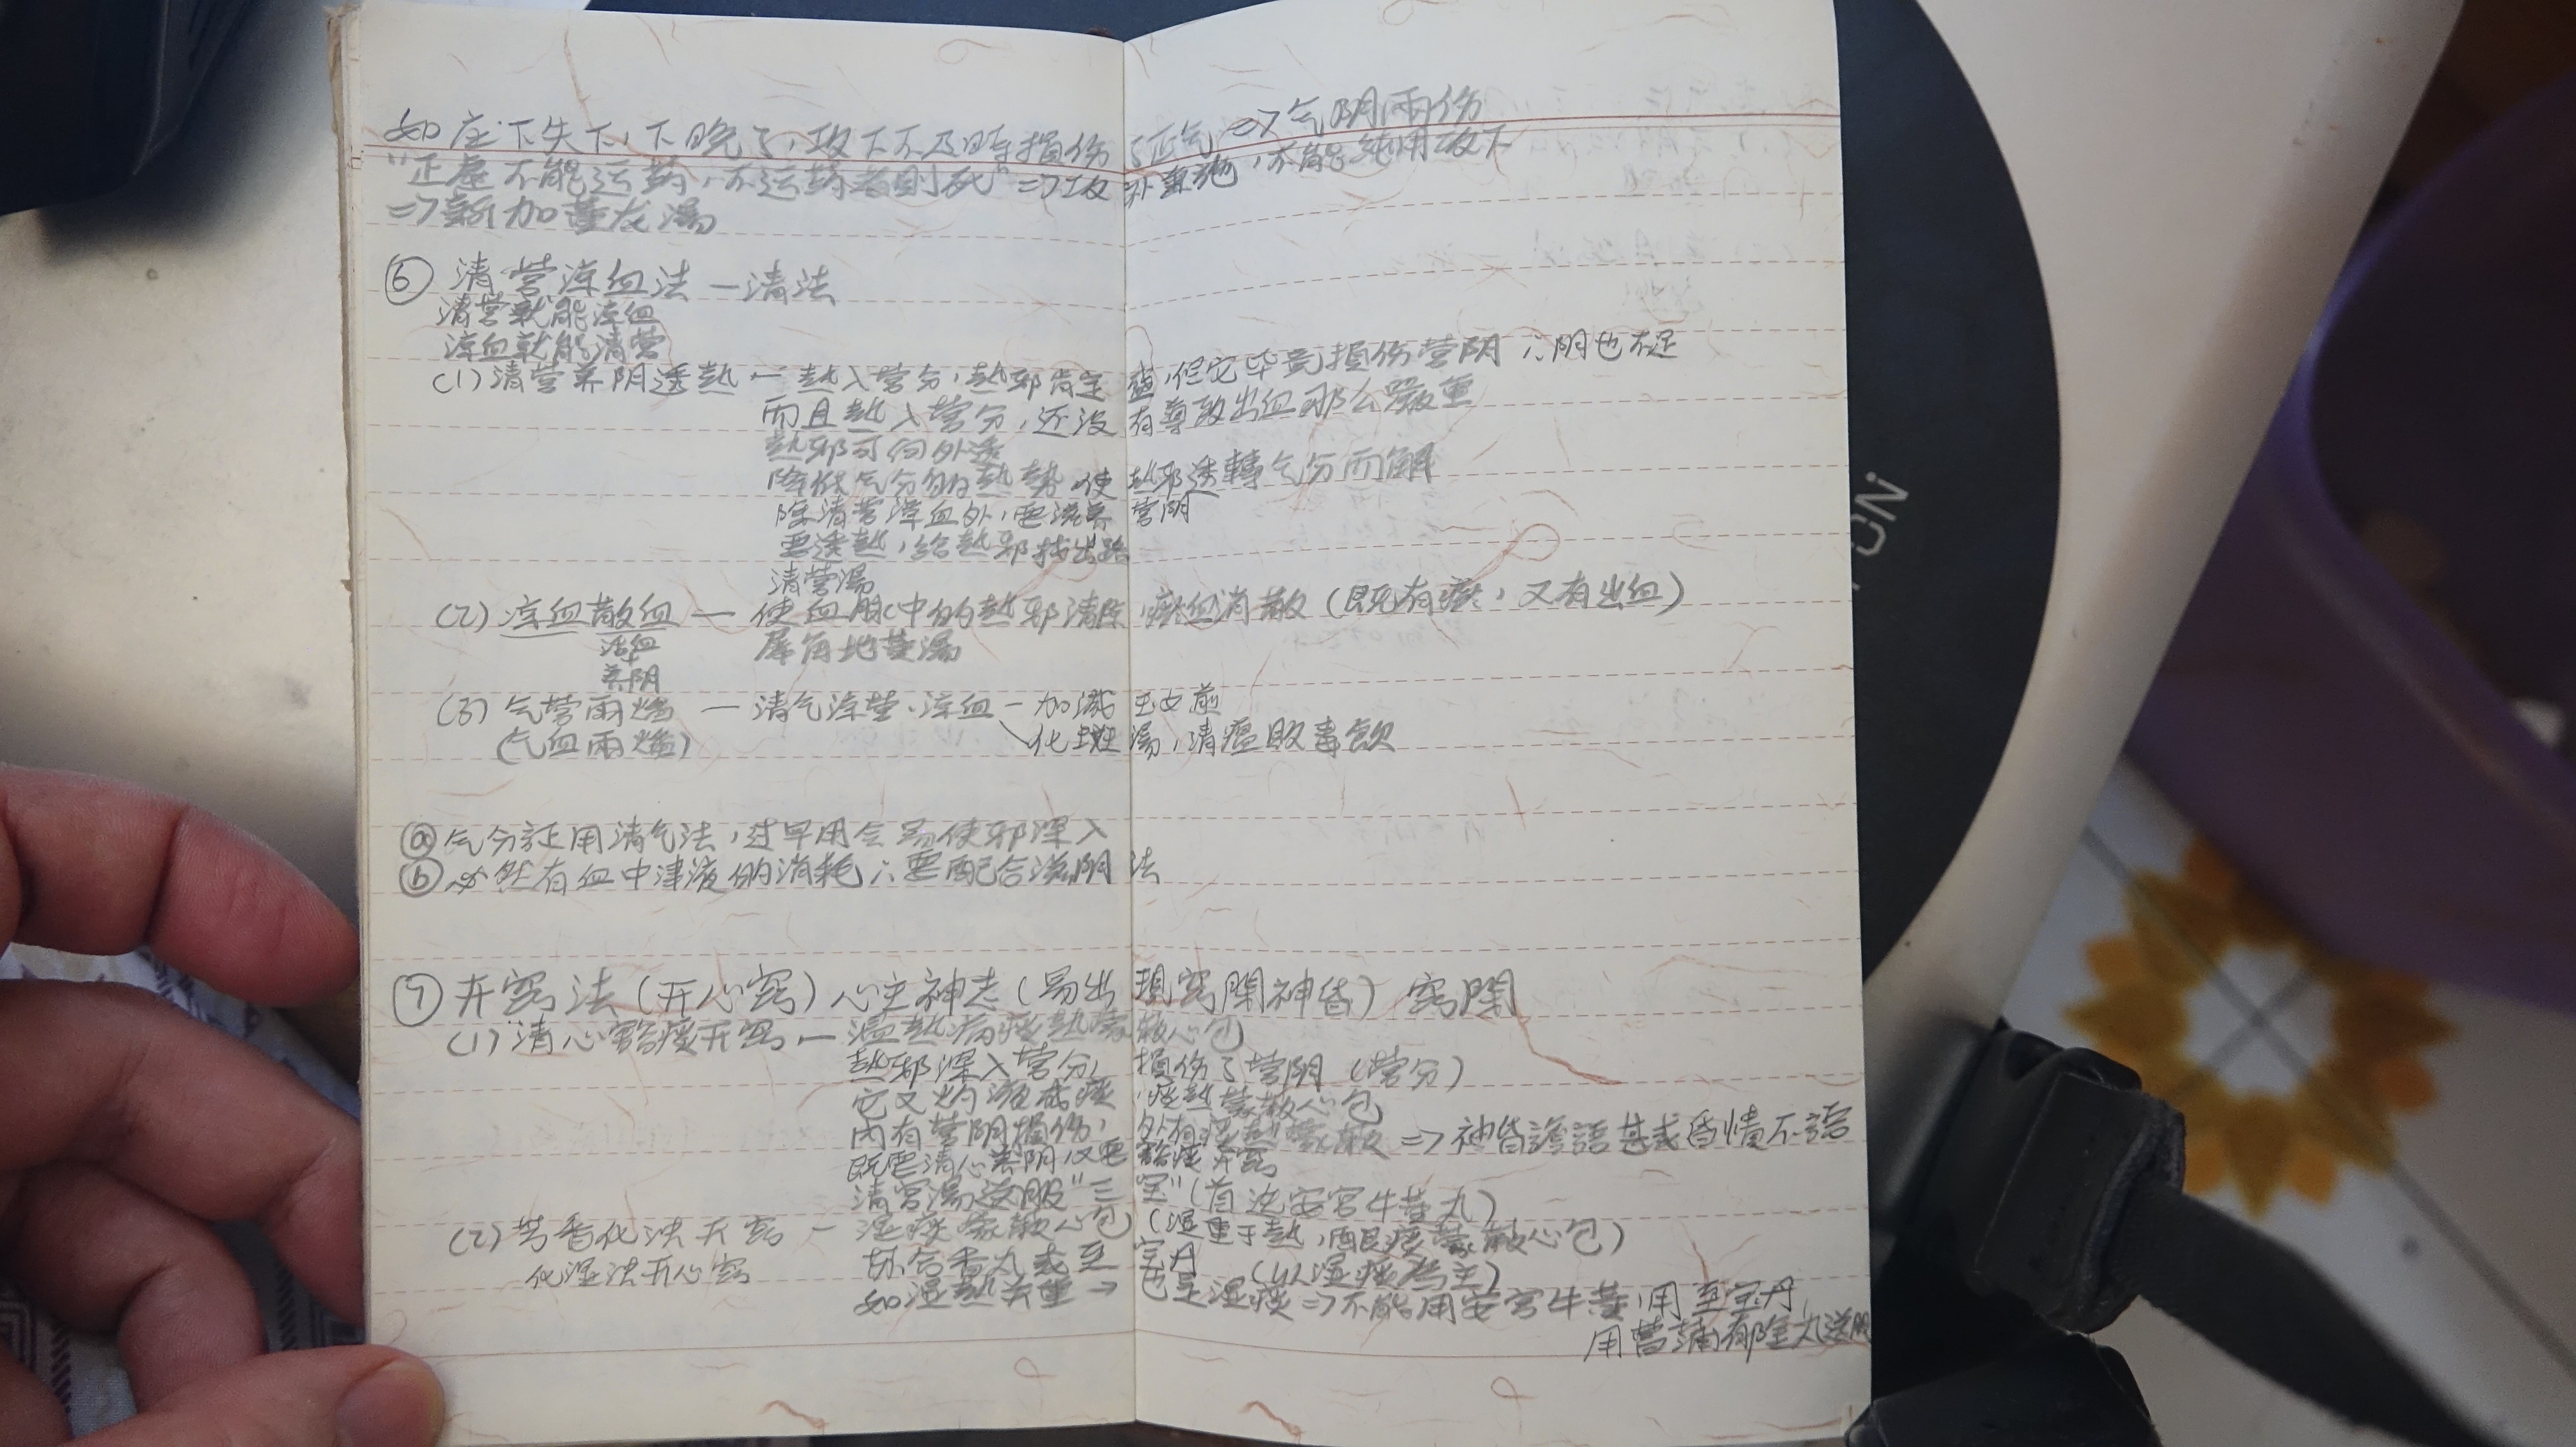 如应下失下,下晚了,攻下不及时損伤了正气 => 气阴两伤
"正虚不能运药,不运药者則死" => 攻补兼施,不能純用攻下
=> 新加黄龙湯
⑥ 清营涼血法 — 清法
清营就能涼血
涼血就能清营
(1) 清营养阴透熱 — 熱入营分,熱邪肯定盛,但它毕竟損伤营阴 ∴阴也不足
而且熱入营分,还没有導致出血那么嚴重
熱邪可向外透
降低气分的熱勢,使熱邪透轉气分而解
除清营涼血外,要滋养营阴
要透熱,給熱邪找出路
清营湯
(2) 涼血散血 — 使血脉中的熱邪清除,瘀血消散(既有瘀,又有出血)
活血 犀角地黄湯
+
养阴
(3) 气营兩燔 — 清气涼营、涼血 — 加减玉女煎
(气血兩燔) 化斑湯,清瘟敗毒飲
ⓐ 气分証用清气法,过早用会易使邪深入
ⓑ 必然有血中津液的消耗 ∴要配合滋阴法
⑦ 开窍法(开心窍)心主神志(易出現窍閉神昏) 窍閉
(1) 清心豁痰开窍 — 温熱病痰熱蒙蔽心包
熱邪深入营分,損伤了营阴(营分)
它又灼液成痰,痰熱蒙蔽心包
内有营阴損伤,外有痰熱蒙蔽 => 神昏譫語甚或昏憒不語
既要清心养阴,又要豁痰开窍
清宮湯送服"三宝"(首选安宮牛黄丸)
(2) 芳香化浊开窍 — 湿痰蒙蔽心包(湿重于熱,酿痰蒙蔽心包)
化湿法开心窍 苏合香丸或至宝丹 (以湿痰为主)
如湿熱并重 → 也是湿痰 => 不能用安宮牛黄,用至宝丹,
用菖蒲郁金丸送服